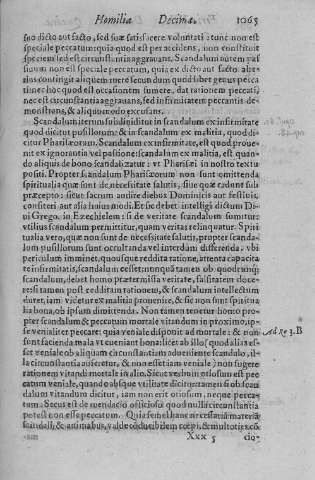 Homilia Decima. 1065
suo dicto aut facto, sed suæ satisfacere voluntati: tunc non est
speciale peccatum: quia quod est per accidens, non constituit
speciem sed est circumstantia aggravans. Scandalum autem pas
siuum non est speciale peccatum, quia ex dicto aut facto alte-
rius contingit aliquem ruere secundum quodlibet genus pecca
ti: nec hoc quod est occasionem sumere, dat rationem peccati,
nec est circumstantia aggrauans, sed infirmitatem peccantis de-
monstrans, & aliquo modo excusans.
Scandalum iterum subdiuiditur in scandalum ex infirmitate
quod dicitur pusillorum: & in scandalum ex malitia, quod di-
citur Pharisæorum. Scandalum ex infirmitate, est quod proue-
nit ex ignorantia vel passione: scandalum ex malitia, est quan-
do aliquis de bono scandalizatur: vt Pharisæi in nostro textu
positi. Propter scandalum Pharisæorum non sunt omittenda
spiritualia quæ sunt de necessitate salutis, siue quæ cadunt sub
præcepto: sicut sacrum audire diebus Dominicis aut festiuis,
confiteri aut alia huiusmodi. Et sic debet intelligi dictum Di-
ui Grego. in Ezechielem: si de veritate scandalum sumitur:
vtilius scandalum permittitur, quam veritas relinquatur. Spiri-
tualia vero, quæ non sunt de necessitate salutis, propter scanda-
lum pusillorum sunt occultanda vel interdum differenda, vbi
periculum imminet, quousque reddita ratione, attenta capacita
te infirmitatis, scandalum cesset:
scandalum, debet homo prætermissa veritate, falsitatem doce-
re: si tamen post redditam rationem, & scandalum intellectum
duret, iam videtur ex malitia prouenire, & sic non sunt spiritua
lia bona, ob ipsum dimittenda. Non tamen tenetur homo pro-
pter scandalum & peccatum mortale vitandum in proximo, ip-
se venialiter peccare: quia veniale disponit ad mortale: & non
sunt facienda mala vt eueniant bona: licet ab illo quod alias es- Ad Ro 3.B
set veniale ob aliquam circumstantiam adueniente scandalo, il-
la circumstantia auferetur, & non esset iam veniale) non sugere
rationem vitandi mortale in alio. Sicut verbum otiosum est pec
catum veniale, quando absque vtilitate dicitur: tamen si ob scan
dalum vitandum dicitur, iam non erit otiosum, neque pecca-
tum. Secus est de mendacio officioso quod nulla circumstantia
potest non esse peccatum. Quia si bel hanc necessariã materiã
scandali, & animabus, valde conducibilem cœpi, & multoties cõ
Xxx 5 cio-